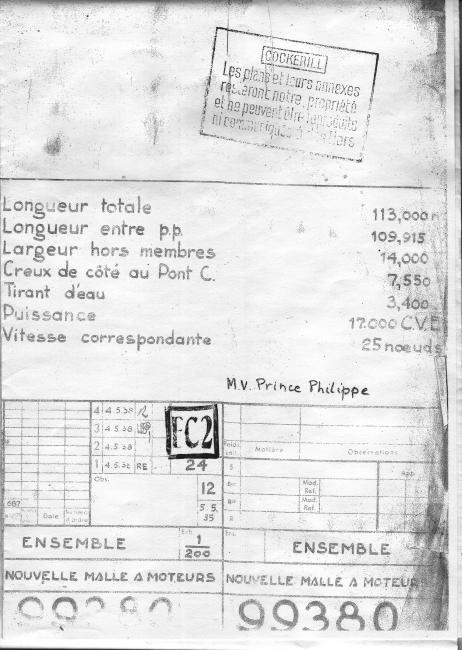 COCKERILL
Les plans et leurs annexes
resteront notre propriété
et ne peuvent être reproduits
ni communiqués à tiers
Longueur totale 113,000 m
Longueur entre p.p. 109,915
Largeur hors membres 14,000
Creux de côté au Pont C. 7,550
Tirant d'eau 3,400
Puissance 17.000 C.V.E
Vitesse correspondante 25 noeuds
M.V. Prince Philippe
4 4.5.38
3 4.5.38
2 4.5.38
1 4.5.38 RE
FC2
24
Obs.
12
5.5.
35
Poids
Matière
Observations
App.
Mod.
Ref.
Mod.
Ref.
687
Date
Ech. 1/200
ENSEMBLE
ENSEMBLE
NOUVELLE MALLE A MOTEURS
NOUVELLE MALLE A MOTEURS
99380
99380